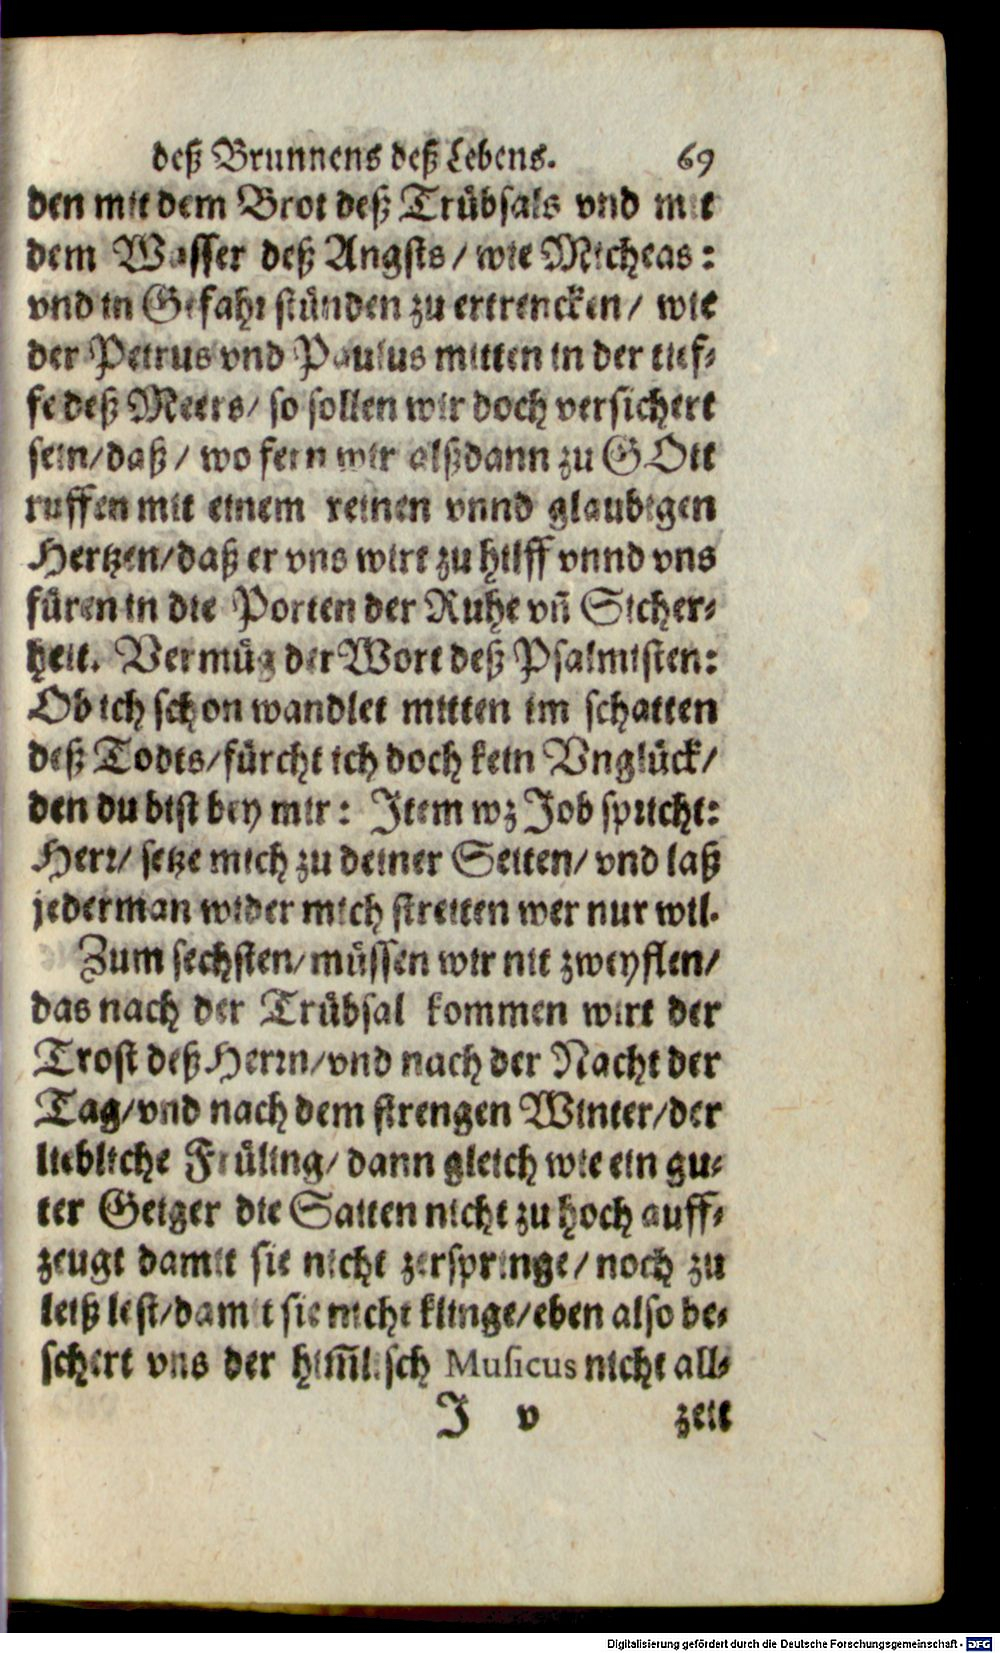 deß Brunnens deß Lebens. 69
den mit dem Brot deß Trübsals vnd mit
dem Wasser deß Angsts / wie Micheas:
vnd in Gefahr stünden zu ertrencken / wie
der Petrus vnd Paulus mitten in der tief⸗
fe deß Meers / so sollen wir doch versichert
sein / daß / wo fern wir alßdann zu GOtt
ruffen mit einem reinen vnnd glaubigen
Hertzen / daß er vns wirt zu hilff vnnd vns
füren in die Porten der Ruhe vn̄ Sicher⸗
heit. Vermüg der Wort deß Psalmisten:
Ob ich schon wandlet mitten im schatten
deß Todts / fürcht ich doch kein Vnglück /
den du bist bey mir: Item wz Job spricht:
Herr / setze mich zu deiner Seiten / vnd laß
jederman wider mich streitten wer nur wil.
Zum sechsten / müssen wir nit zweyflen /
das nach der Trübsal kommen wirt der
Trost deß Herrn / vnd nach der Nacht der
Tag / vnd nach dem strengen Winter / der
liebliche Früling / dann gleich wie ein gu⸗
ter Geiger die Saiten nicht zu hoch auff⸗
zeugt damit sie nicht zerspringe / noch zu
leiß lest / damit sie nicht klinge / eben also be⸗
schert vns der him̄lisch Musicus nicht all⸗
J v zeit
Digitalisierung gefördert durch die Deutsche Forschungsgemeinschaft - DFG